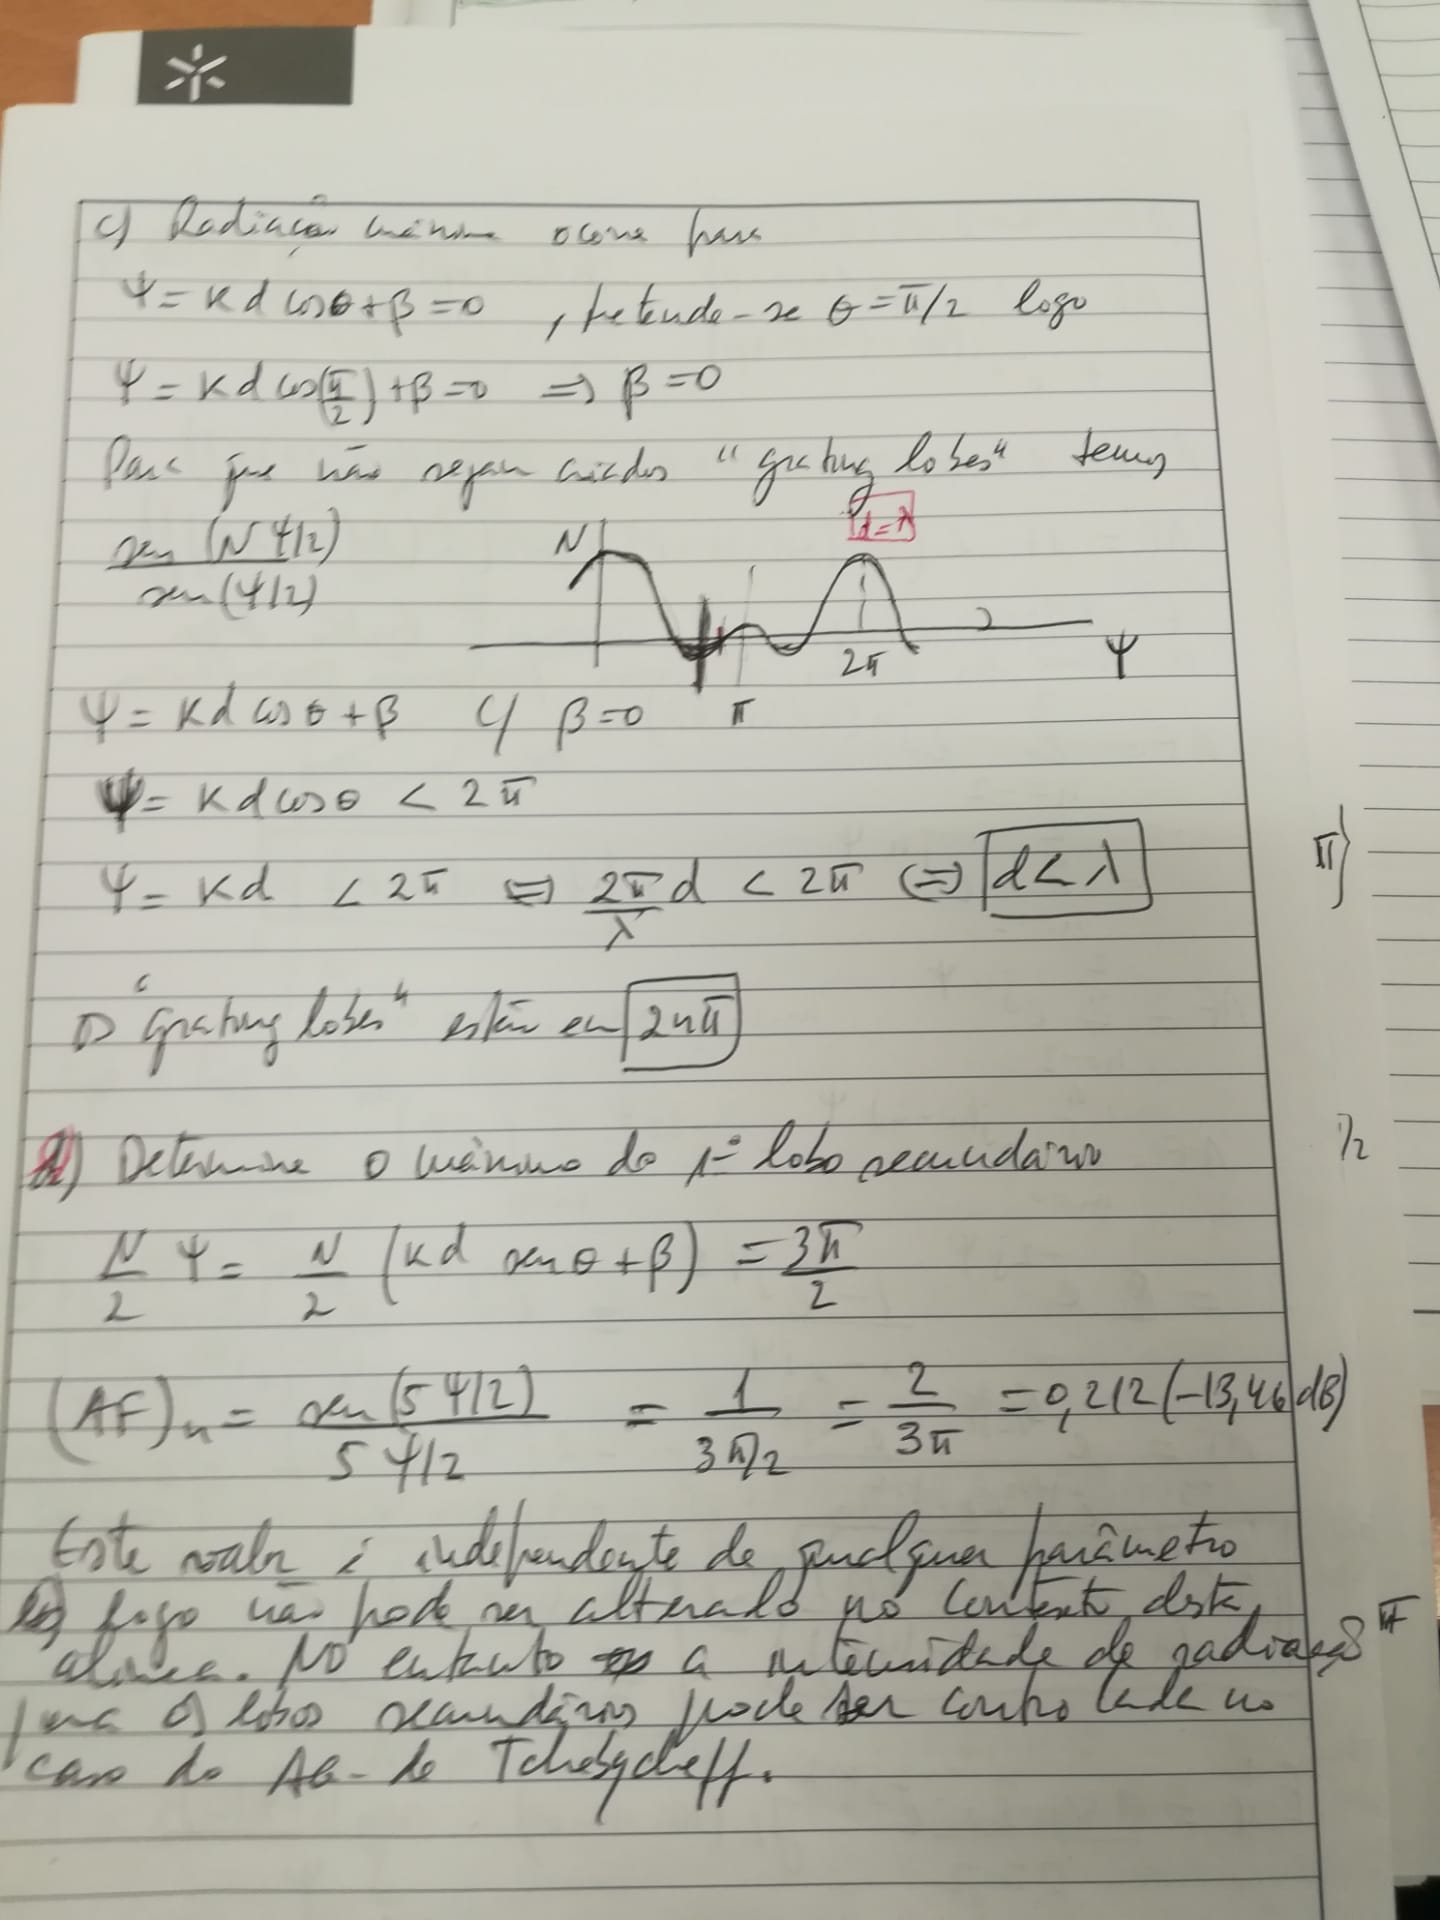 c) Radiação máxima ocorre para
Ψ = K d cosθ + β = 0 , pretende-se θ = π/2 logo
Ψ = K d cos(π/2) + β = 0 => β = 0
Para que não sejam criados "grating lobes" temos
d = λ
sen (N Ψ/2) / sen (Ψ/2)
N
2π
Ψ
π
Ψ = K d cos θ + β c/ β = 0
Ψ = K d cos θ < 2π
Ψ = K d < 2π <=> 2π/λ d < 2π <=> d < λ
π}
Os "grating lobes" estão em 2nπ
d) Determine o máximo do 1º lobo secundário
/2
N/2 Ψ = N/2 (K d sen θ + β) = 3π/2
(AF)n = sen (5 Ψ/2) / 5 Ψ/2 = 1 / 3π/2 = 2/3π = 0,212 (-13,46 dB)
Este valor é independente de qualquer parâmetro
logo não pode ser alterado no contexto desta
π
alínea. No entanto a intensidade de radiação
para os lobos secundários pode ser controlada no
caso do de Tchebycheff.